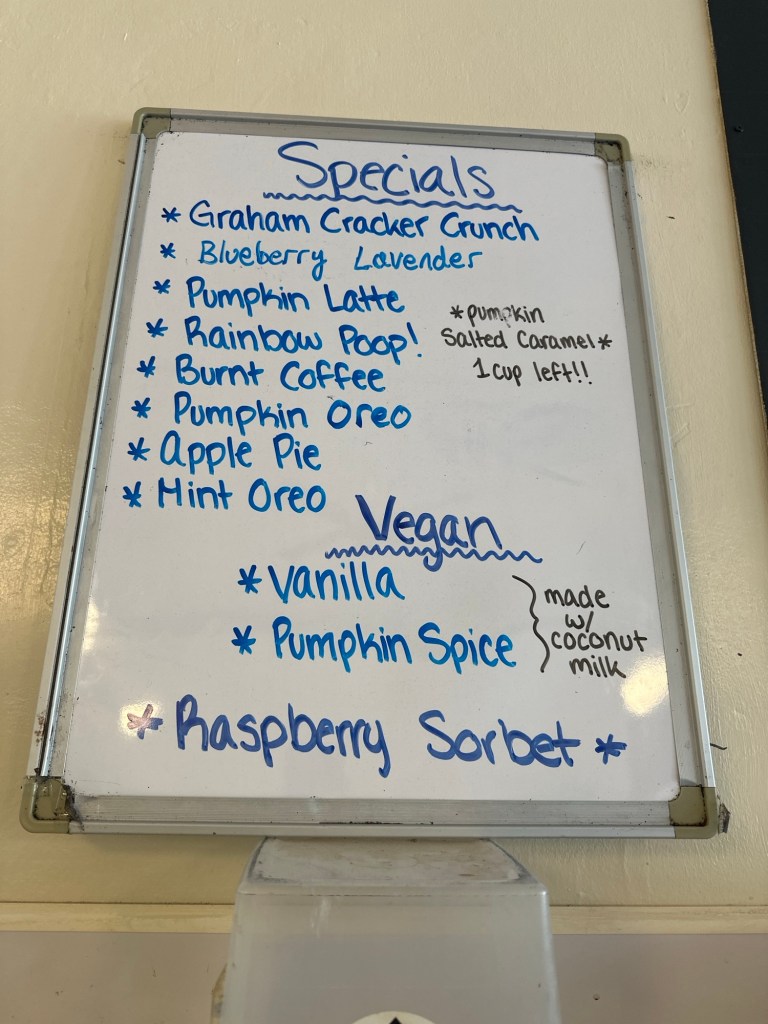 Specials
* Graham Cracker Crunch
* Blueberry Lavender
* Pumpkin Latte
* Rainbow Poop!
* Burnt Coffee
* Pumpkin Oreo
* Apple Pie
* Mint Oreo
*pumpkin
Salted Caramel*
1 cup left!!
Vegan
* Vanilla
* Pumpkin Spice
made
w/
coconut
milk
* Raspberry Sorbet *